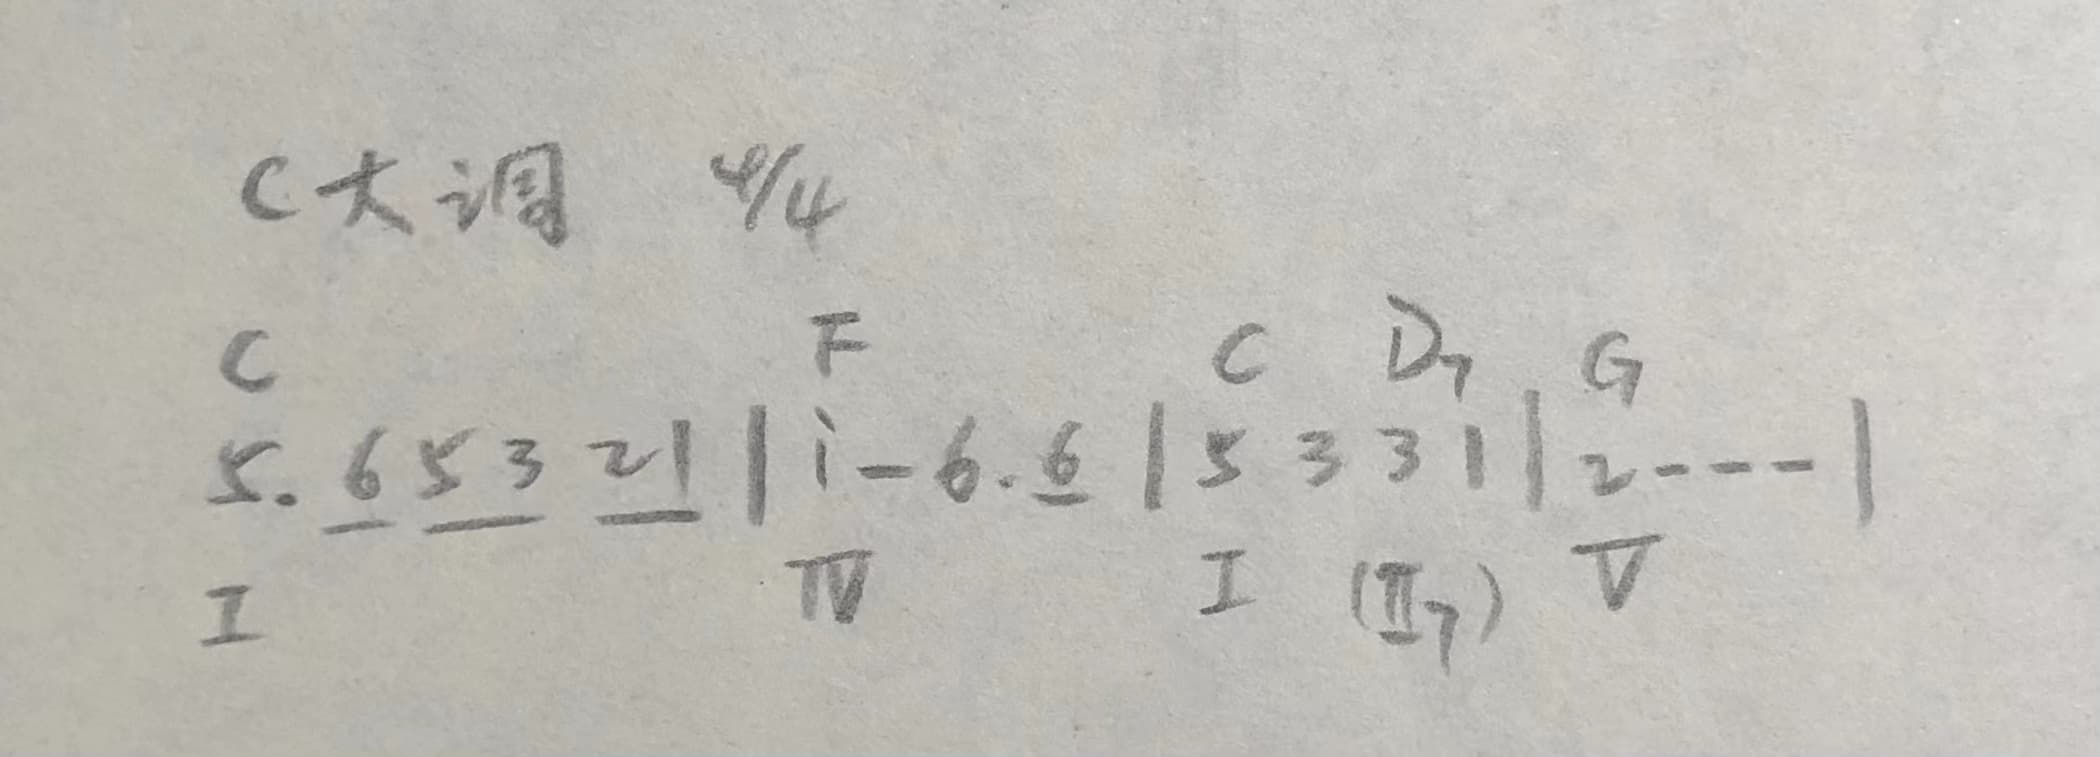 C大调 4/4
C F C D7 G
5. 6 5 3 2 1 | i - 6. 6 | 5 3 3 1 | 2 - - - |
I IV I (II7) V